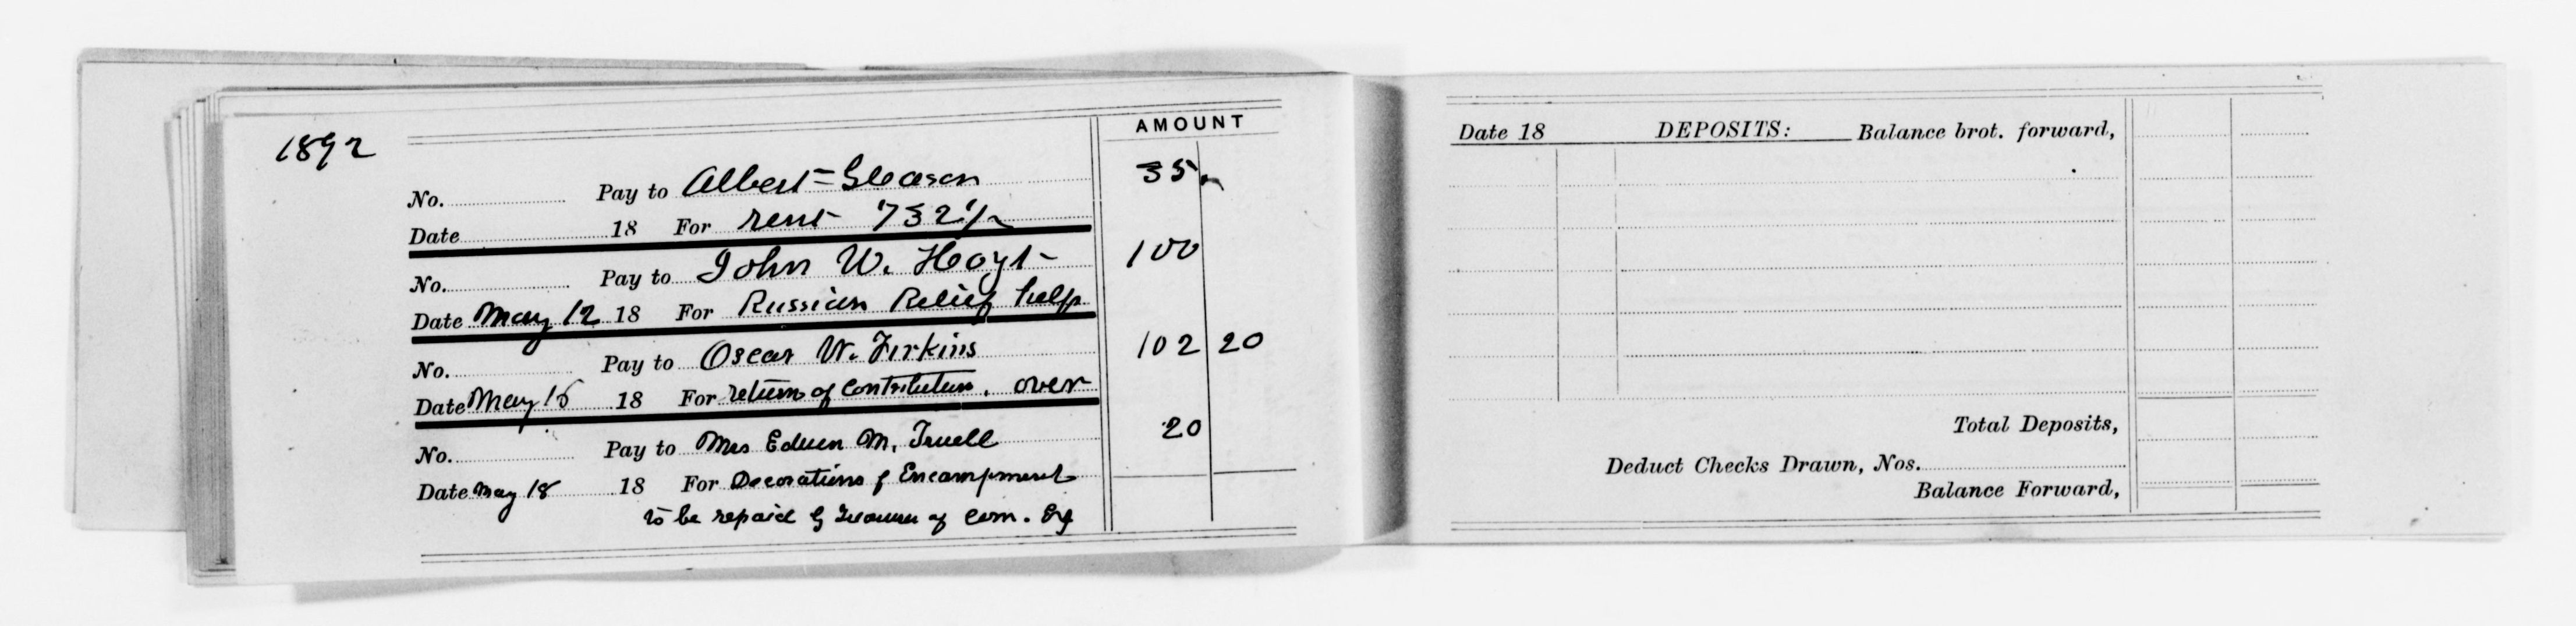 1892
AMOUNT
No. Pay to Albert Gleason 35
Date 18 For rent 732 1/2
No. Pay to John W. Hoyt 100
Date May 12 18 For Russian Relief help
No. Pay to Oscar W. Firkins 102 20
Date May 15 18 For return of Contribution. over
No. Pay to Mrs M. Truell 20
Date May 18 18 For Decorations of Encampment
to be repaid by Treasurer of Com.
Date 18 DEPOSITS: Balance brot. forward,
Total Deposits,
Deduct Checks Drawn, Nos.
Balance Forward,